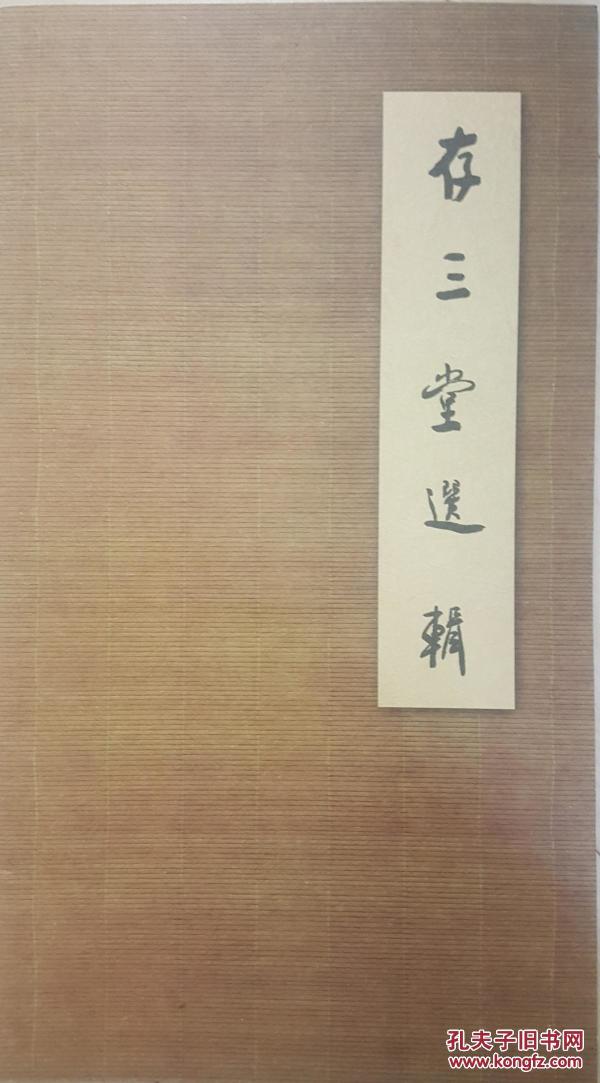 存三堂選輯
孔夫子旧书网
www.kongfz.com